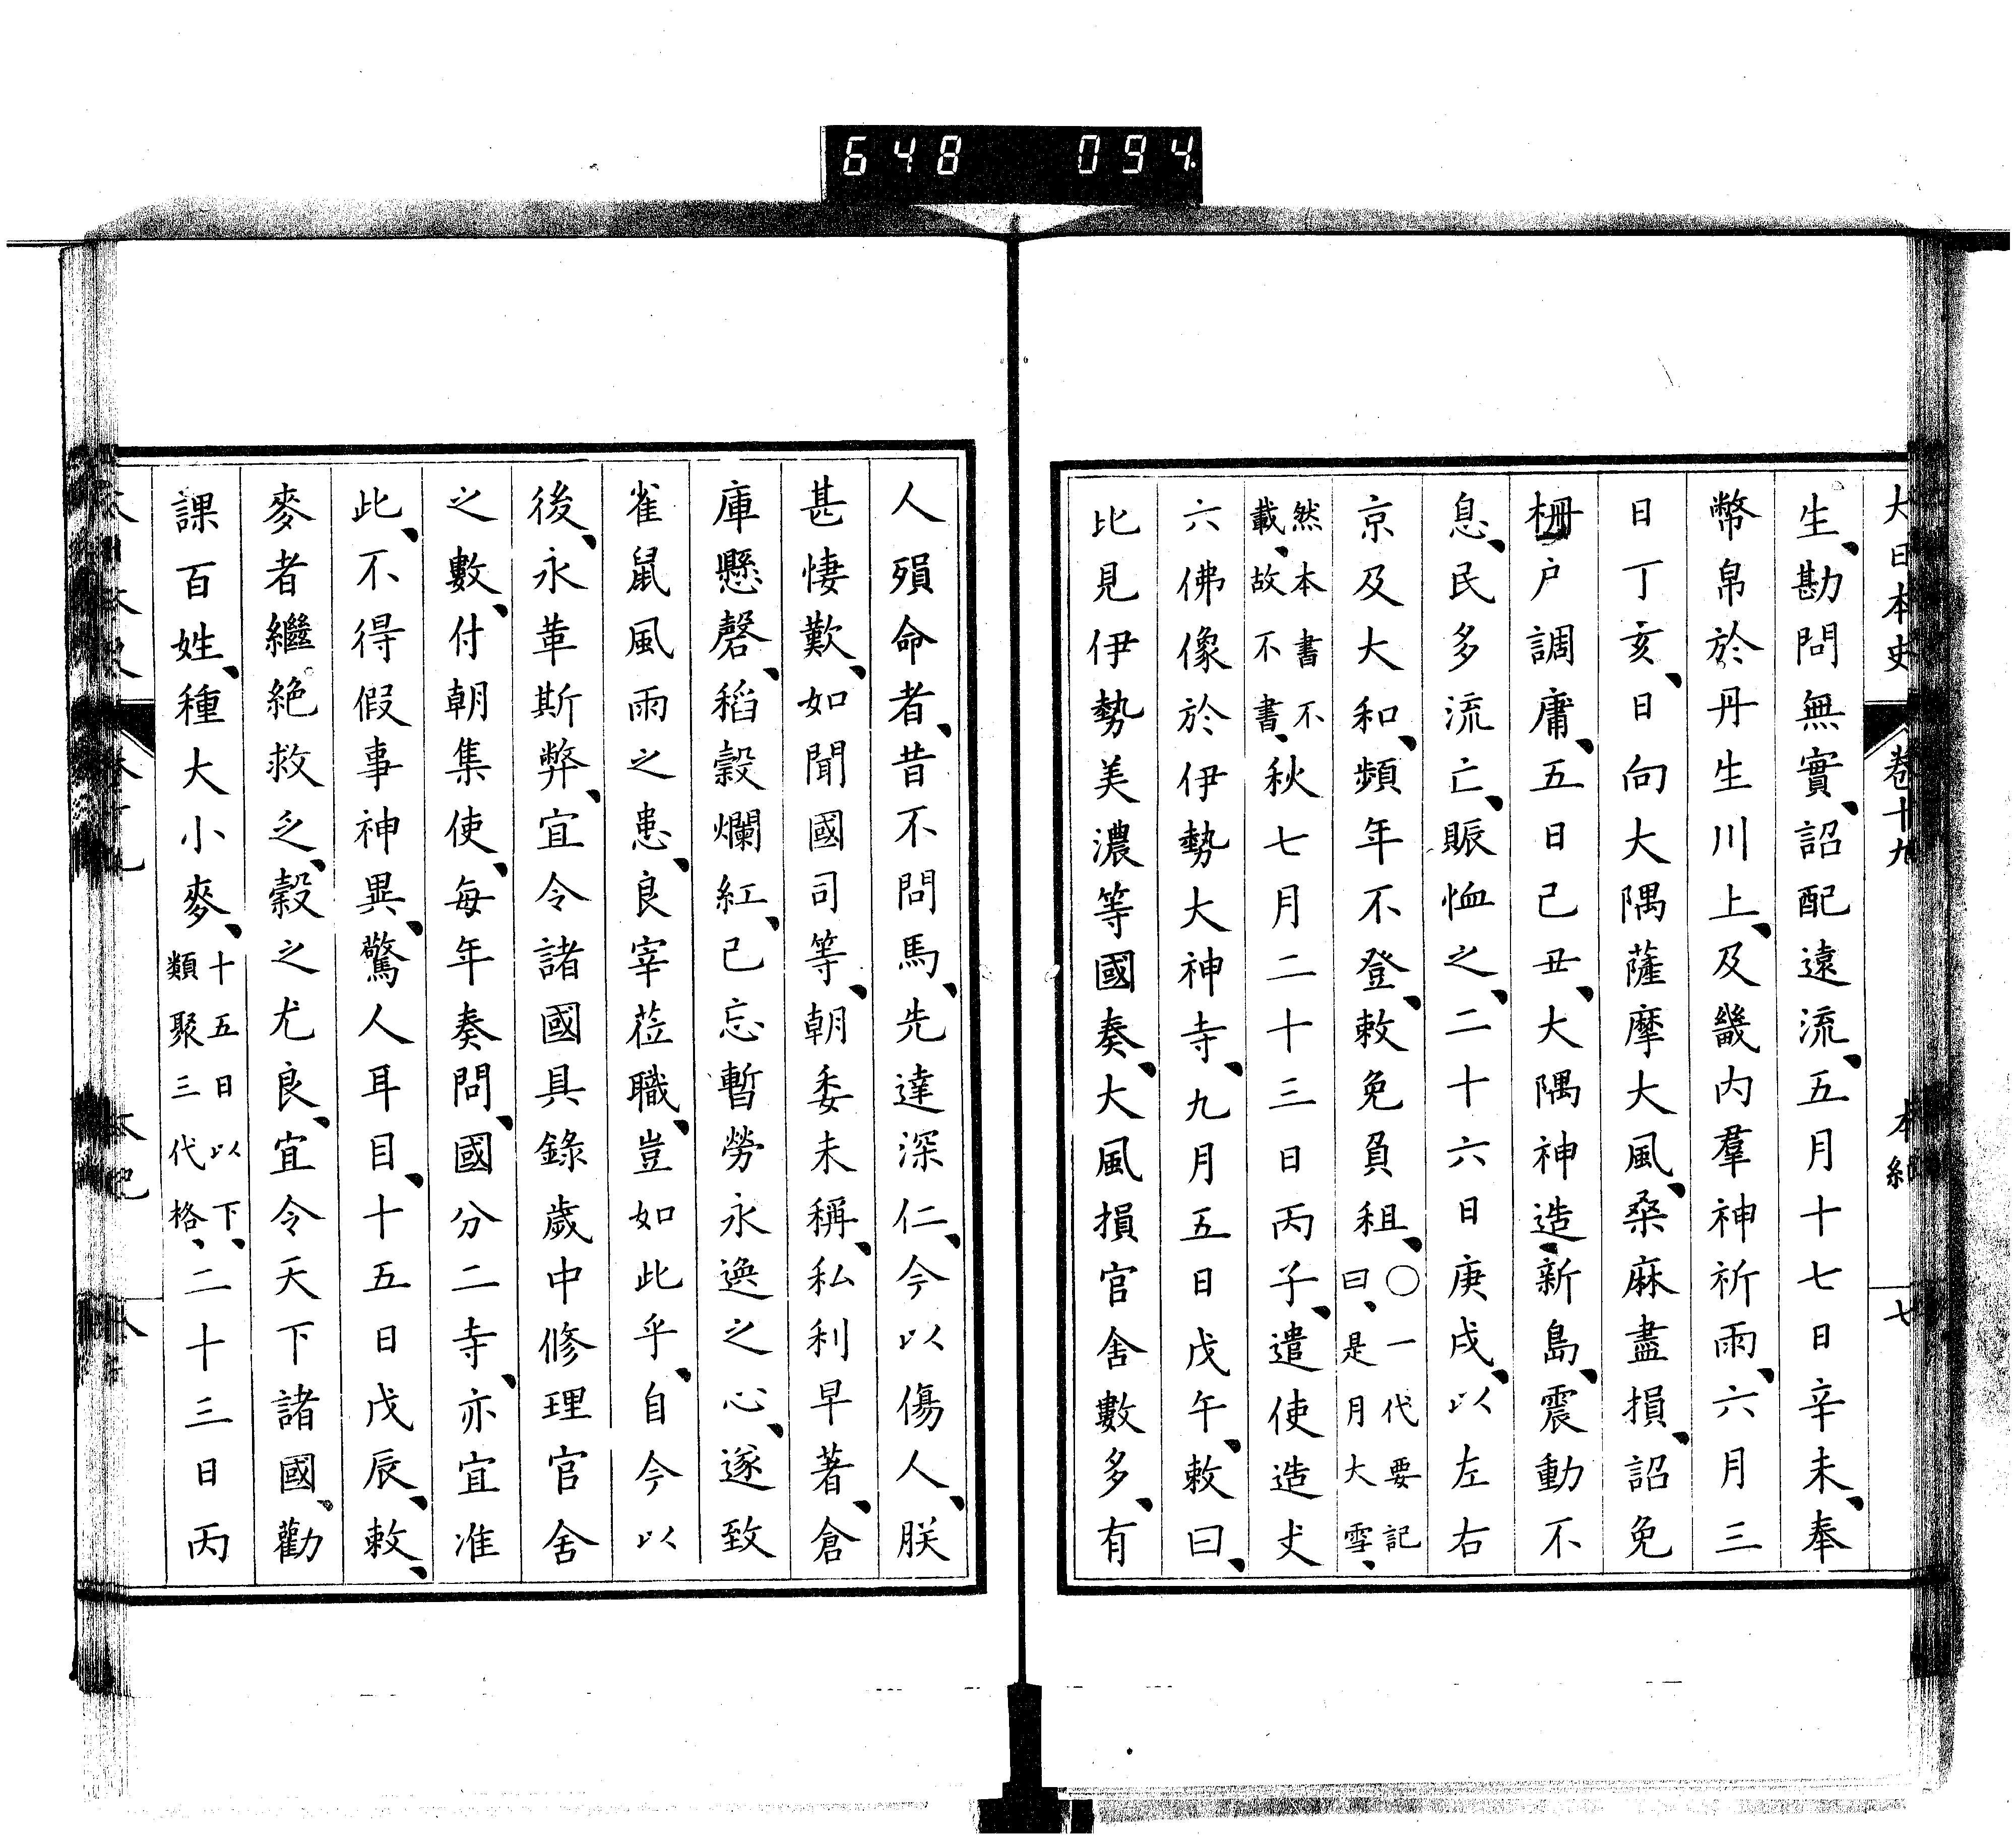 648 094
大日本史 卷十九 本紀 七
生、勘問無實、詔配遠流、五月十七日辛未、奉
幣帛於丹生川上、及畿内羣神祈雨、六月三
日丁亥、日向大隅薩摩大風、桑麻盡損、詔免
柵戸調庸、五日己丑、大隅神造新島、震動不
息、民多流亡、賑恤之、二十六日庚戌、以左右
京及大和、頻年不登、敕免負租、〇一代要記
曰、是月大雪、
然本書不
載、故不書、秋七月二十三日丙子、遣使造丈
六佛像於伊勢大神寺、九月五日戊午、敕曰、
比見伊勢美濃等國奏、大風損官舍數多、有
人殞命者、昔不問馬、先達深仁、今以傷人、朕
甚悽歎、如聞國司等、朝委未稱、私利早著、倉
庫懸磬、稻穀爛紅、已忘暫勞永逸之心、遂致
雀鼠風雨之患、良宰莅職、豈如此乎、自今以
後、永革斯弊、宜令諸國具錄歲中修理官舍
之數、付朝集使、每年奏問、國分二寺、亦宜准
此、不得假事神異、驚人耳目、十五日戊辰、敕、
麥者繼絶救乏、穀之尤良、宜令天下諸國、勸
課百姓、種大小麥、十五日以下、
類聚三代格、二十三日丙